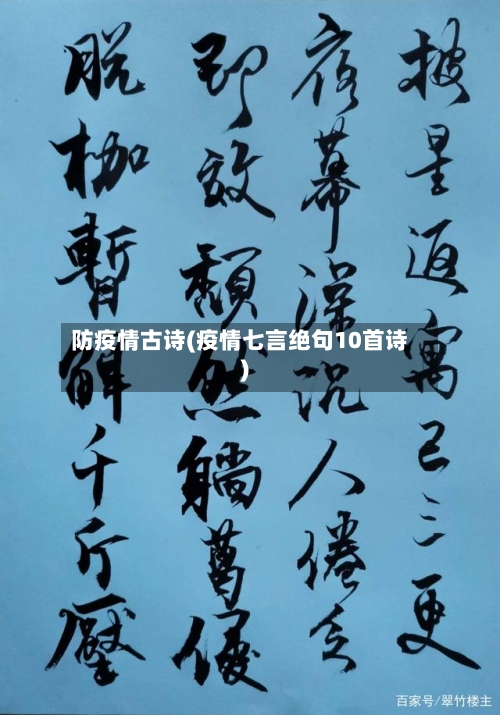 披星返寓已三更
夜幕深沉人倦乏
即效頹然躺葛優
脱枷暫解千斤壓
防疫情古诗(疫情七言绝句10首诗
)
百家号/翠竹楼主